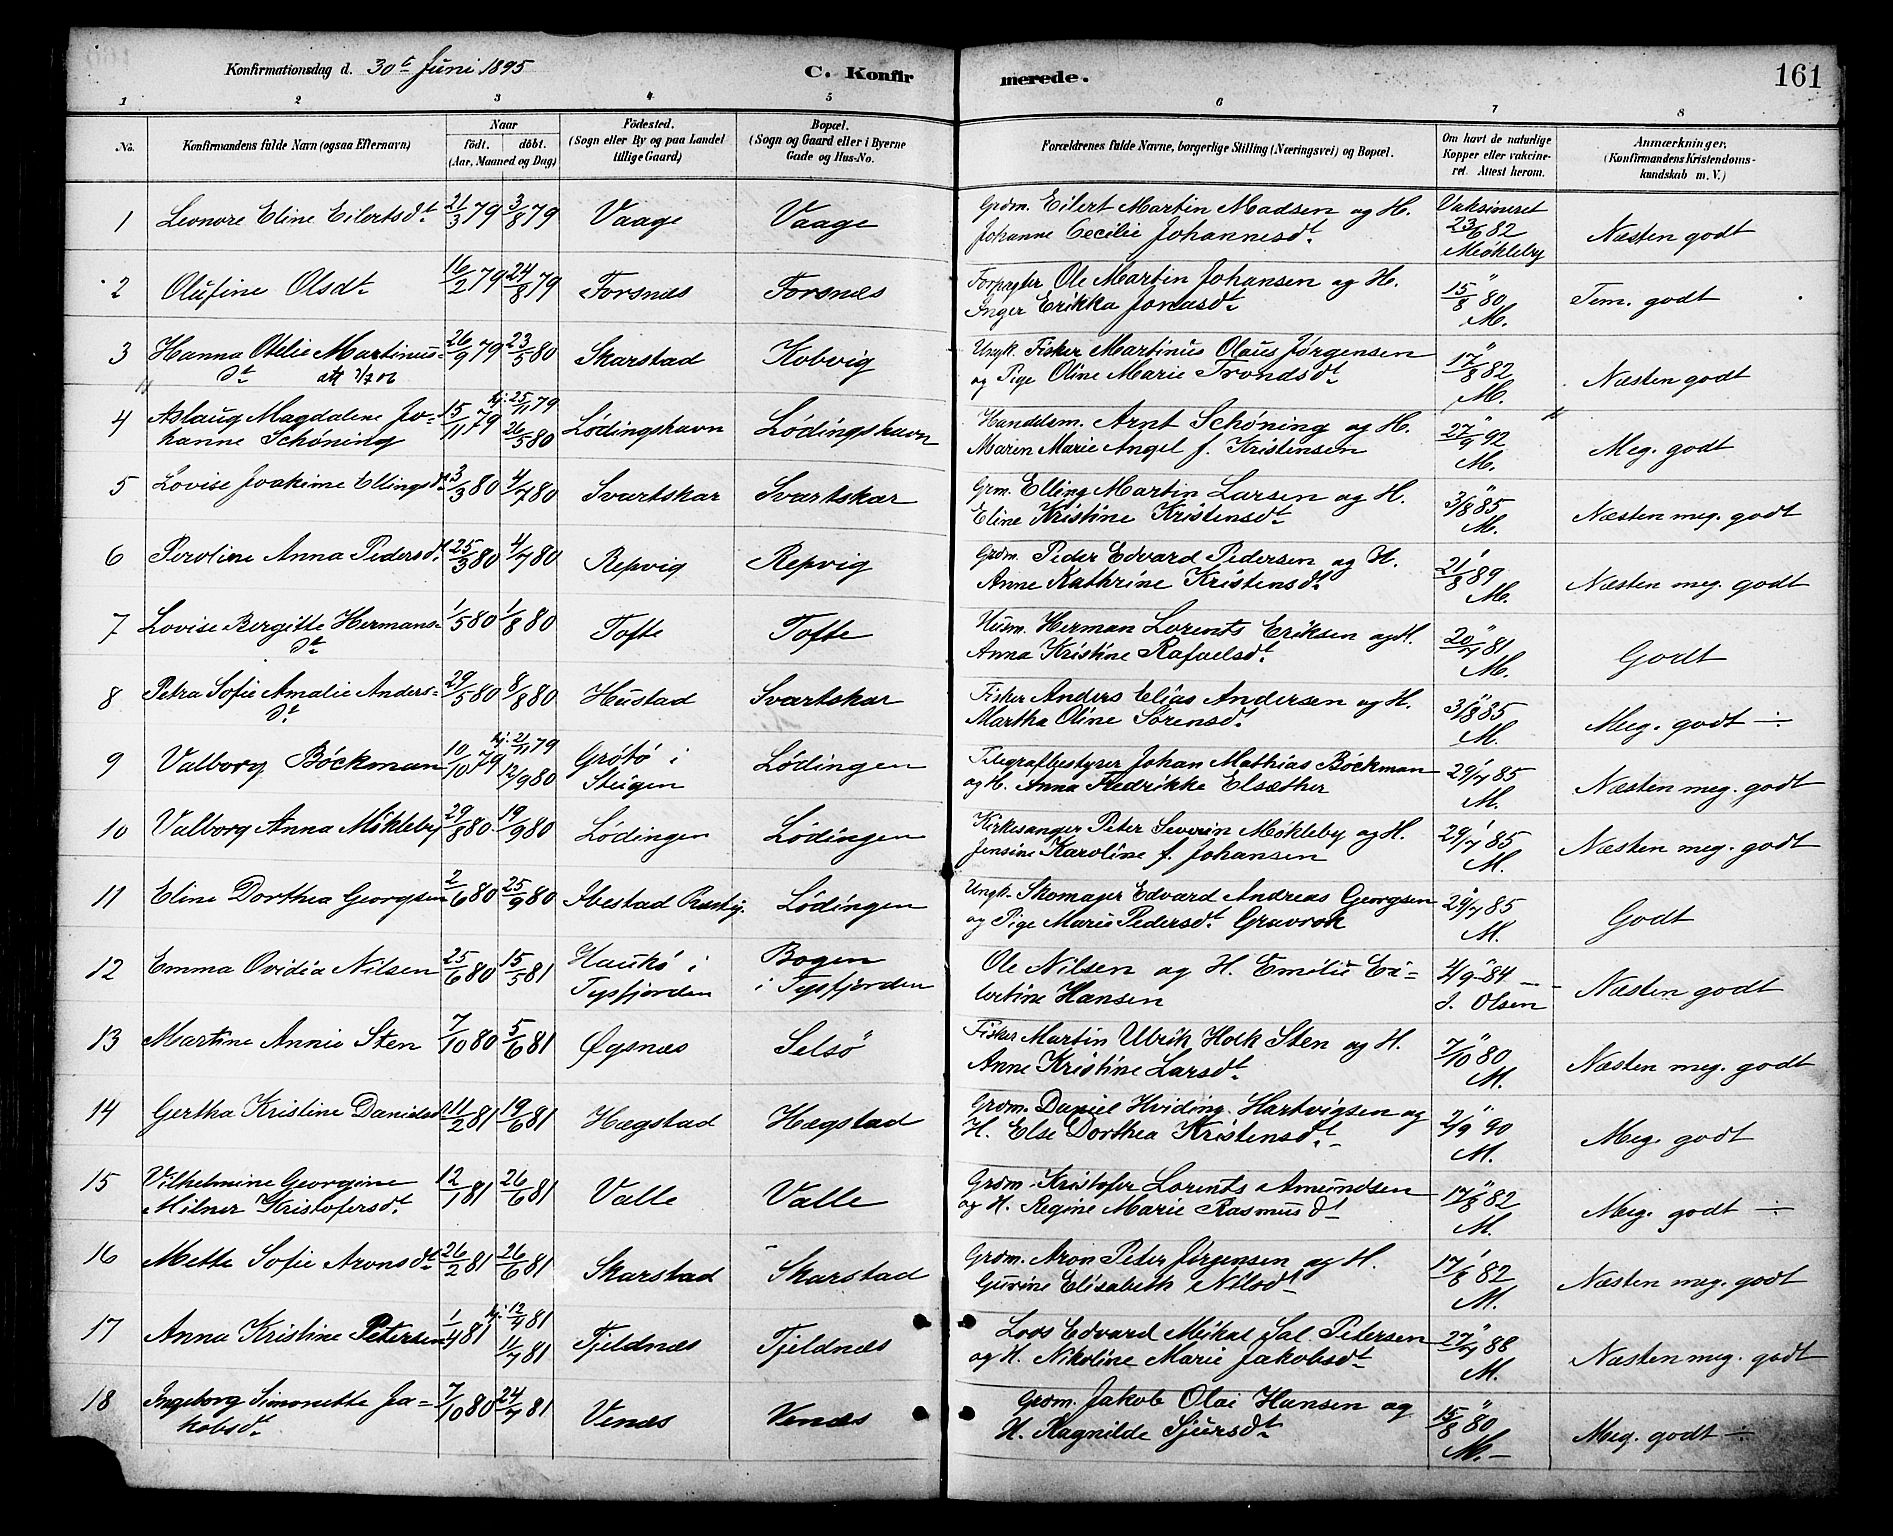 Konfirmationsdag d. 30te Juni 1895 C. Konfirmerede. 161
1 2 3 4 5 6 7 8
No. Konfirmandens fulde Navn (ogsaa Efternavn) Naar Födt. döbt. (Aar, Maaned og Dag) Födested. (Sogn eller By og paa Landet tillige Gaard) Bopæl. (Sogn og Gaard eller i Byerne Gade og Hus-No. Forældrenes fulde Navne, borgerlige Stilling (Næringsvei) og Bopæl. Om havt de naturlige Kopper eller vakcineret. Attest herom. Anmærkninger. (Konfirmandens Kristendomskundskab m. V.)
1 Leonore Eline Eilertsdt. 21/3 79 3/8 79 Vaage Vaage Grdm. Eilert Martin Madsen og H. Vaksineret
Johanne Cecilie Johannesdt. 23/6 82 Møkleby Næsten godt
2 Olufine Olsdt. 16/2 79 24/8 79 Forsnæs Forsnæs Forpagter Ole Martin Johansen og H.
Inger Erikka Jonasdt. 15/8 80 M. Tem. godt
3 Hanna Otelie Martinusdt. 26/9 79 23/5 80 Skarstad Kobvig Ungk. Fisker Martinus Olaus Jørgensen
og Pige Oline Marie Trondsdt. 17/8 82 M. Næsten godt
4 Aslaug Magdalene Jo- 15/11 79 hj. 25/11 79 Lødingshavn Lødingshavn Handelsm. Arnt Schøning og H.
hanne Schøning 26/5 80 Maren Marie Angel f. Kristensen 27/9 92 M. Meg. godt
5 Lovise Joakime Ellingsdt. 3/3 80 4/7 80 Svartskar Svartskar Grm. Elling Martin Larsen og H.
Eline Kristine Kristensdt. 3/8 85 M. Næsten meg. godt
6 Peroline Anna Pedersdt. 25/3 80 4/7 80 Repvig Repvig Grdm. Peder Edvard Pedersen og H.
Anne Kathrine Kristensdt. 21/8 89 M. Næsten meg. godt
7 Lovise Bergitte Hermans- 1/5 80 1/8 80 Tofte Tofte Husm. Herman Lorents Eriksen og H.
dt. Anna Kristine Rafaelsdt. 20/7 81 M. Godt
8 Petra Sofie Amalie Anders- 29/5 80 8/8 80 Hustad Svartskar Fisker Anders Elias Andersen og H.
dt. Martha Oline Sørensdt. 3/8 85 M. Meg. godt ÷
9 Valborg Böckman 10/10 79 hj. 21/11 79 Grötö i Lödingen Telegrafbestyrer Johan Mathias Böckman
12/9 80 Steigen og H. Anna Fredrikke Elsæther 29/7 85 M. Næsten meg. godt
10 Valborg Anna Møkleby 29/8 80 19/9 80 Lödingen Lödingen Kirkesanger Peter Severin Møkleby og H.
Jensine Karoline f. Johansen 29/7 85 M. Næsten meg. godt
11 Eline Dorthea Georgsen 2/6 80 25/9 80 Ibestad Præstgj. Lödingen Ungk. Skomager Edvard Andreas Georgsen
og Pige Marie Pedersdt. Gravrok 29/7 85 M. Godt
12 Emma Ovidia Nilsen 25/6 80 15/5 81 Haukö i Bogen Ole Nilsen og H. Emilie Ei-
Tysfjorden i Tysfjorden lertine Hansen 4/9 84 J. Olsen Næsten godt
13 Martine Annie Sten 7/10 80 5/6 81 Øgsnæs Selsö Fisker Martin Ulrik Holk Sten og H.
Anne Kristine Larsdt. 7/10 80 M. Næsten meg. godt
14 Gertha Kristine Danielsdt. 11/2 81 19/6 81 Hægstad Hægstad Grdm. Daniel Hviding Hartvigsen og
H. Else Dorthea Kristensdt. 2/9 90 M. Meg. godt
15 Vilhelmine Georgine 12/1 81 26/6 81 Valle Valle Grdm. Kristofer Lorents Amundsen
Milner Kristofersdt. og H. Regine Marie Rasmusdt. 17/8 82 M. Meg. godt ÷
16 Mette Sofie Aronsdt. 26/2 81 26/6 81 Skarstad Skarstad Grdm. Aron Peter Jørgensen og H.
Gurine Elisabeth Nilsdt. 17/8 82 M. Næsten meg. godt
17 Anna Kristine Petersen 1/4 81 hj. 12/4 81 Fjeldnæs Fjeldnæs Lods Edvard Mikal Sal. Petersen
11/7 81 og H. Nikoline Marie Jakobsdt. 27/7 88 M. Næsten meg. godt
18 Ingeborg Simonette Ja- 7/10 80 24/7 81 Venæs Venæs Grdm. Jakob Olai Hansen og
kobsdt. H. Ragnilde Sjursdt. 15/8 80 M. Meg. godt ÷